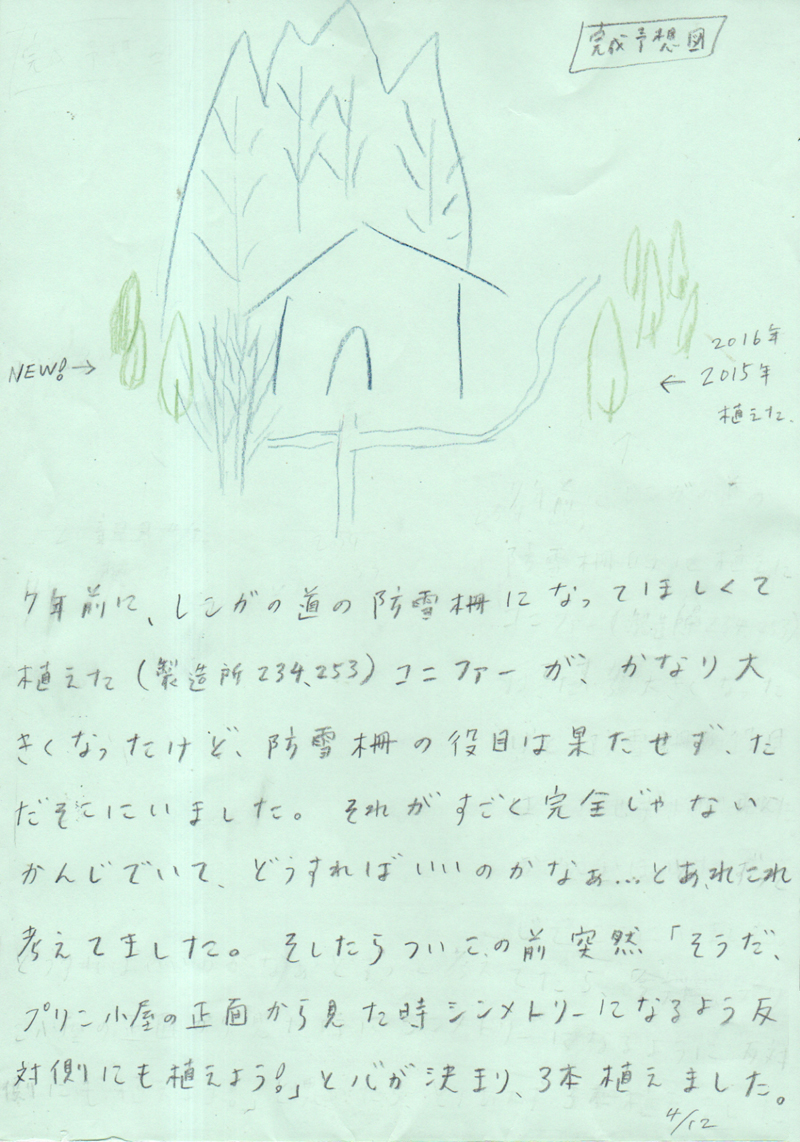 完成予想図
NEW!→
2016年
← 2015年
植えた.
7年前に、レンガの道の防雪柵になってほしくて
植えた(製造所234、253)コニファーが、かなり大
きくなったけど、防雪柵の役目は果たせず、た
だそこにいました。それがすごく完全じゃない
かんじでいて、どうすればいいのかなぁ…とあれこれ
考えてました。そしたらついこの前突然「そうだ、
プリン小屋の正面から見た時シンメトリーになるよう反
対側にも植えよう!」と心が決まり、3本植えました。
4/12